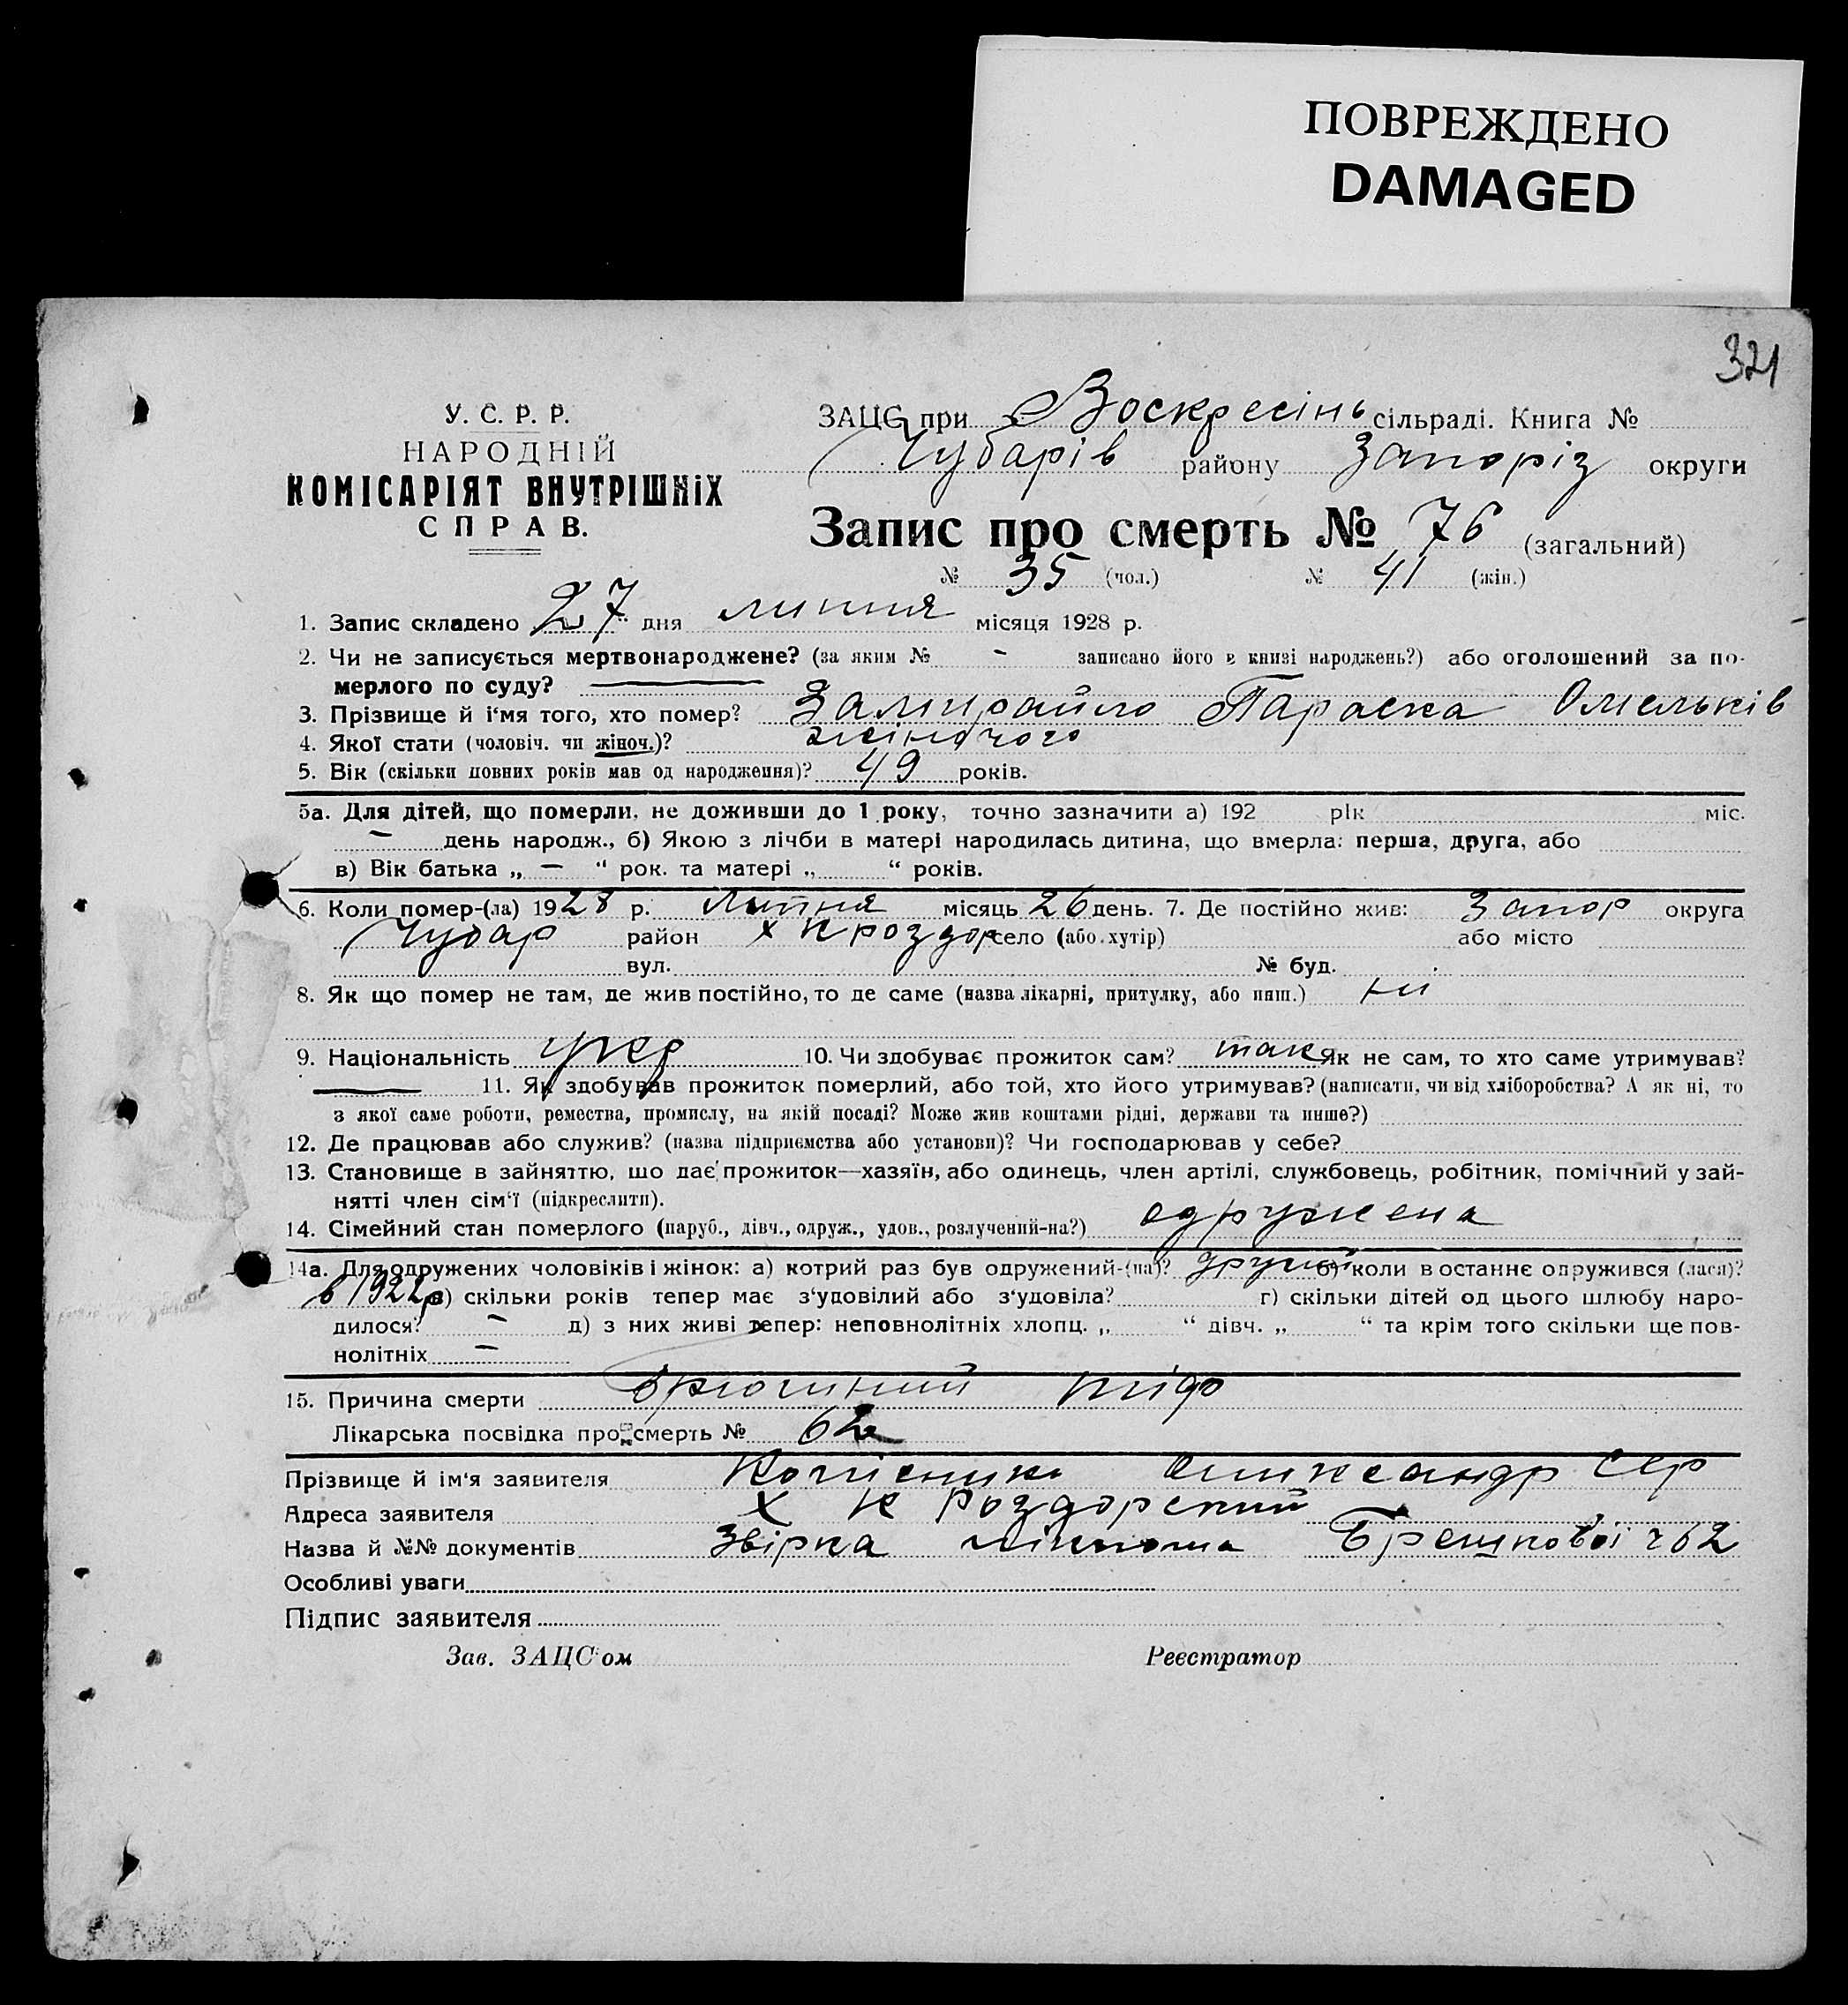 ПОВРЕЖДЕНО
DAMAGED
321
У. С. Р. Р.
НАРОДНІЙ
КОМІСАРІЯТ ВНУТРІШНІХ
СПРАВ.
ЗАЦС при Воскресінь сільраді. Книга №
Чубарів району Запоріз округи
Запис про смерть № 76 (загальний)
№ 35 (чол.) № 41 (жін.)
1. Запис складено 27 " дня липня місяця 1928 р.
2. Чи не записується мертвонароджене? (за яким № - записано його в книзі народжень?) або оголошений за по-
мерлого по суду? —
3. Прізвище й і'мя того, хто помер? Замирайло Параска Омельків
4. Якої стати (чоловіч. чи жіноч.)? жіночого
5. Вік (скільки повних років мав од народження)? 49 років.
5а. Для дітей, що померли, не доживши до 1 року, точно зазначити а) 192 рік міс.
— день народж., б) Якою з лічби в матері народилась дитина, що вмерла: перша, друга, або
в) Вік батька „ — “ рок. та матері „ “ років.
6. Коли помер-(ла) 1928 р. Липня місяць 26 день. 7. Де постійно жив: Запор округа
Чубар район х К роздор село (або хутір) або місто
вул. № буд.
8. Як що помер не там, де жив постійно, то де саме (назва лікарні, притулку, або инш.)
9. Національність укр 10. Чи здобуває прожиток сам? так Як не сам, то хто саме утримував?
— 11. Як здобував прожиток померлий, або той, хто його утримував? (написати, чи від хліборобства? А як ні, то
з якої саме роботи, ремества, промислу, на якій посаді? Може жив коштами рідні, держави та инше?)
12. Де працював або служив? (назва підприємства або установи)? Чи господарював у себе?
13. Становище в зайняттю, що дає прожиток—хазяїн, або одинець, член артілі, службовець, робітник, помічний у зай-
нятті член сім'ї (підкреслити).
14. Сімейний стан померлого (паруб., дівч., одруж., удов., розлучений-на?) одружена
14а. Для одружених чоловіків і жінок: а) котрий раз був одружений-(на)? другий б) коли в останнє одружився (лася)?
в 1922 р в) скільки років тепер має з'удовілий або з'удовіла? г) скільки дітей од цього шлюбу наро-
дилося? - д) з них живі тепер: неповнолітніх хлопц. „ “ дівч. „ “ та крім того скільки ще пов-
нолітніх -
15. Причина смерти брюшний тіф
Лікарська посвідка про смерть № 62
Прізвище й ім'я заявителя Олександр Сер
Адреса заявителя Х К Роздорский
Назва й №№ документів Брешкової ч 62
Особливі уваги
Підпис заявителя
Зав. ЗАЦС'ом Реєстратор